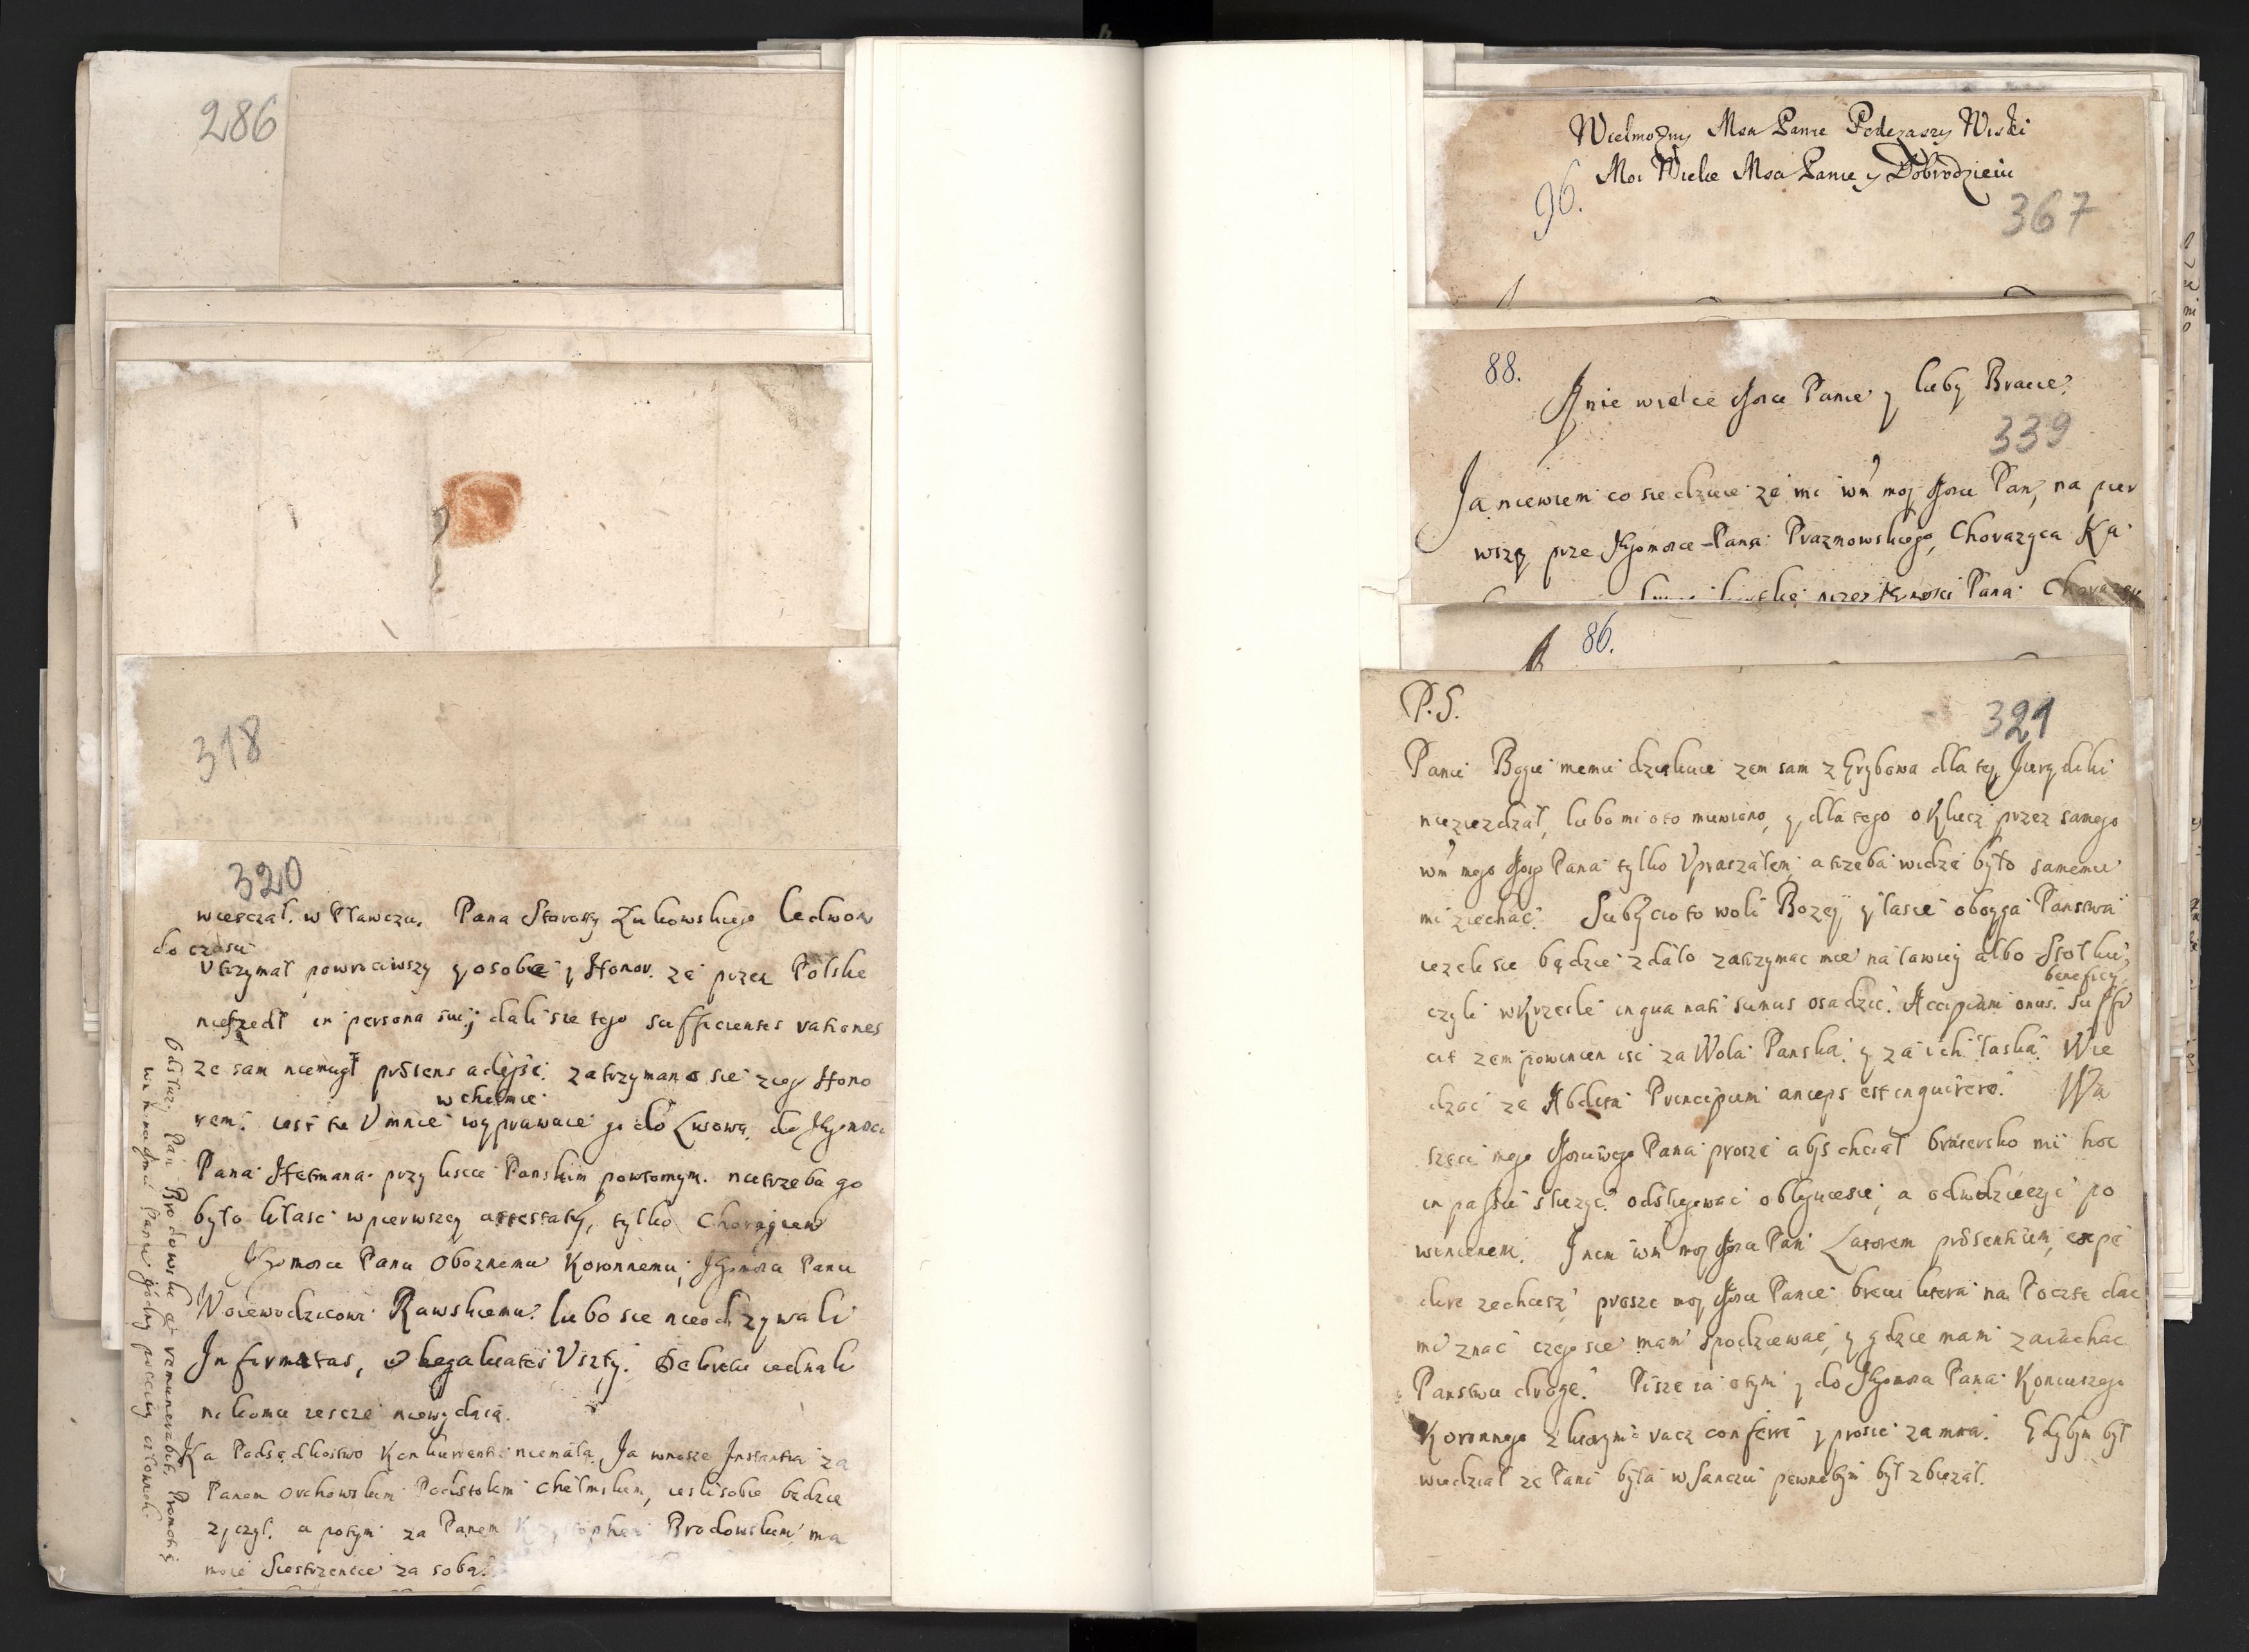 286
318
320
wiesczał. w Tławczu. Pana Starosty Żukowskiego ledwon
do czasu
Utrzymał powrociwszy y osobie y Honor. ze przez Polskę
nieszedł in persona swej dali sie tego sufficientes rationes
ze sam niemugł prsens adejsc. zatrzymano sie z iego Hono
w chełmie
rem. iest tu Umnie wyprawuie go do Lwowa do JKgomosci
Pana Hetmana przy liscie Panskim powtornym. nietrzeba go
było kłasc w pierwszey attestaty, tylko Chorągiew
Jgomosci Panu Oboznemu Koronnemu, Jgomosci Panu
Woiewodzicowi Rawskiemu. lubo sie nieodzywali
Informatas, Legalitates Uszły. Dekretu iednak
nikomu iescze niewydaią.
Ka Podsędkostwo Konkurrentów niemało. Ja wnosze Instantia za
Panem Orchowskim Podstolim Chełmskim, iesli sobie będzie
zyczył. a potym za Panem Krzysztophem Brodowskim ma
moie Siestrzenice za sobą.
Odsłuzy Pan Brodowski et remunerabit Promotię
wm m mu Panu godny poczciwy człowiek
Wielmozny Msci Panie Podczaszy Wiski
Moi Wielce Msci Panie y Dobrodzieiu
96.
367
88.
Mnie wielce Msci Panie y luby Bracie
339
Ja niewiem co sie dzieie ze mi wm moy Msci Pan, na pier
wszy prze Jgomosci Pana Prazmowskiego, Chorazyca Ka
przez Jgmosci Pana Chorazy
86.
P.S.
321
Panu Bogu memu dziekuie zem sam z Grybowa dla tey Jurydiki
niezieźdzał, lubo mi oto muwiono, y dla tego o Klucz przez samego
wm mego Msci Pana tylko Upraszałem, a trzeba widzę było samemu
mi ziechac. Subijcio to woli Bozey y łasce oboyga Panstwa
iezeli sie będzie zdało zatrzymac mie na ławicy albo Stołku,
beneficij
czyli w Krzesle in qua nati sumus osadzic. Accipiam onus. Suffi
cit zem powinien isc za Wolą Panską y za ich łaską. Wie
dząc ze Abdita Principum anceps est inquirere. Wa
szeci mego Msciwego Pana proszę abys chciał braterskò mi hoc
in passu słuzyc. odsługowac obliguiesie, a odwdzieczyc po
winienem. Jnem wm moy Msci Pan Latorem prsentium expe
dire zechcesz proszę moy Msci Panie brevi litera na Poczte dac
mi znac czego sie mam spodziewac, y gdzie mam zaiechac
Panstwu drogę. Piszę ia otym y do Jgomosci Pana Koniuszego
Koronnego z ktorymi racz conferri y prosic za mną. Gdybym był
wiedział ze Pani była w Sanczu pewnobym był zbiezał.